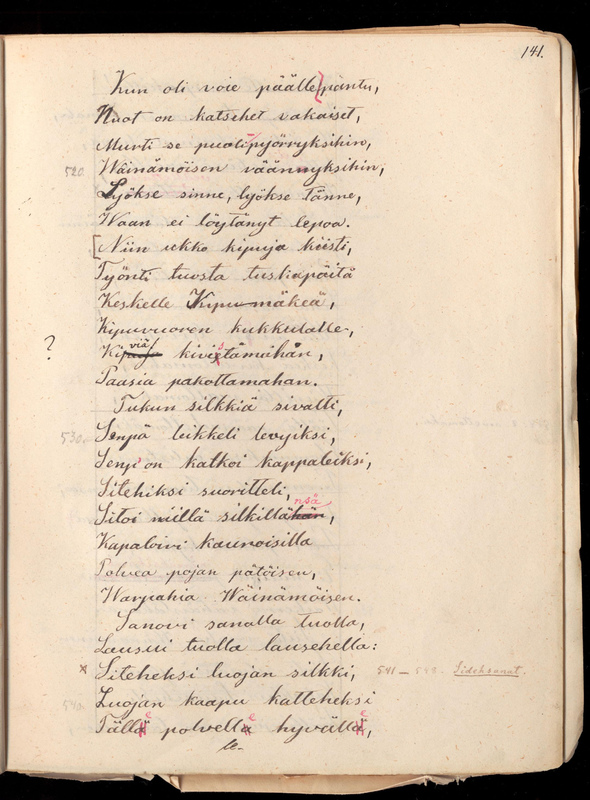 141.
Kun oli voie päälle pantu,
Nuot on katsehet vakaiset,
Murti se puolipyörryksihin,
520. Wäinämöisen väännyksihin,
Lyökse sinne, lyökse tänne,
Waan ei löytänyt lepoa.
[Niin ukko kipuja kiisti,
Työnti tuosta tuskapäitä
Keskelle Kipumäkeä,
Kipuvuoren kukkulalle,
viä
? Kipuja kivistämähän,
Paasia pakottamahan.
Tukun silkkiä sivalti,
530. Senpä leikkeli levyiksi,
Senp' on katkoi kappaleiksi,
Sitehiksi suoritteli,
nsä
Sitoi niillä silkillähän,
Kapaloivi kaunoisilla
Polvea pojan pätöisen,
Warpahia Wäinämöisen.
Sanovi sanalla tuolla,
Lausui tuolla lausehella:
x Siteheksi luojan silkki, 541 — Sideksanat.
540. Luojan kaapu katteheksi
Tällä e polvella e hyvällä e,
le-